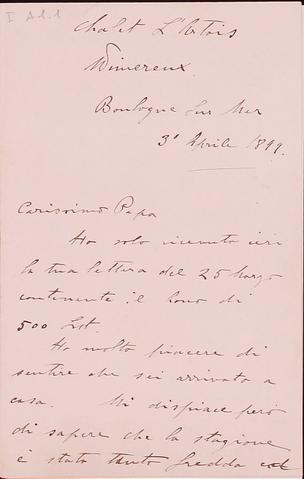 I A.1.1
Chalet L'Artois
Wimereux.
Boulogne sur Mer
3' Aprile 1899.
Carissimo Papa
Ho solo ricevuto ieri
la tua lettera del 25 Marzo
contenente il bono di
500 Lst.
Ho molto piacere di
sentire che sei arrivato a
casa. Mi dispiace però
di sapere che la stagione
è stata tanto fredda ed